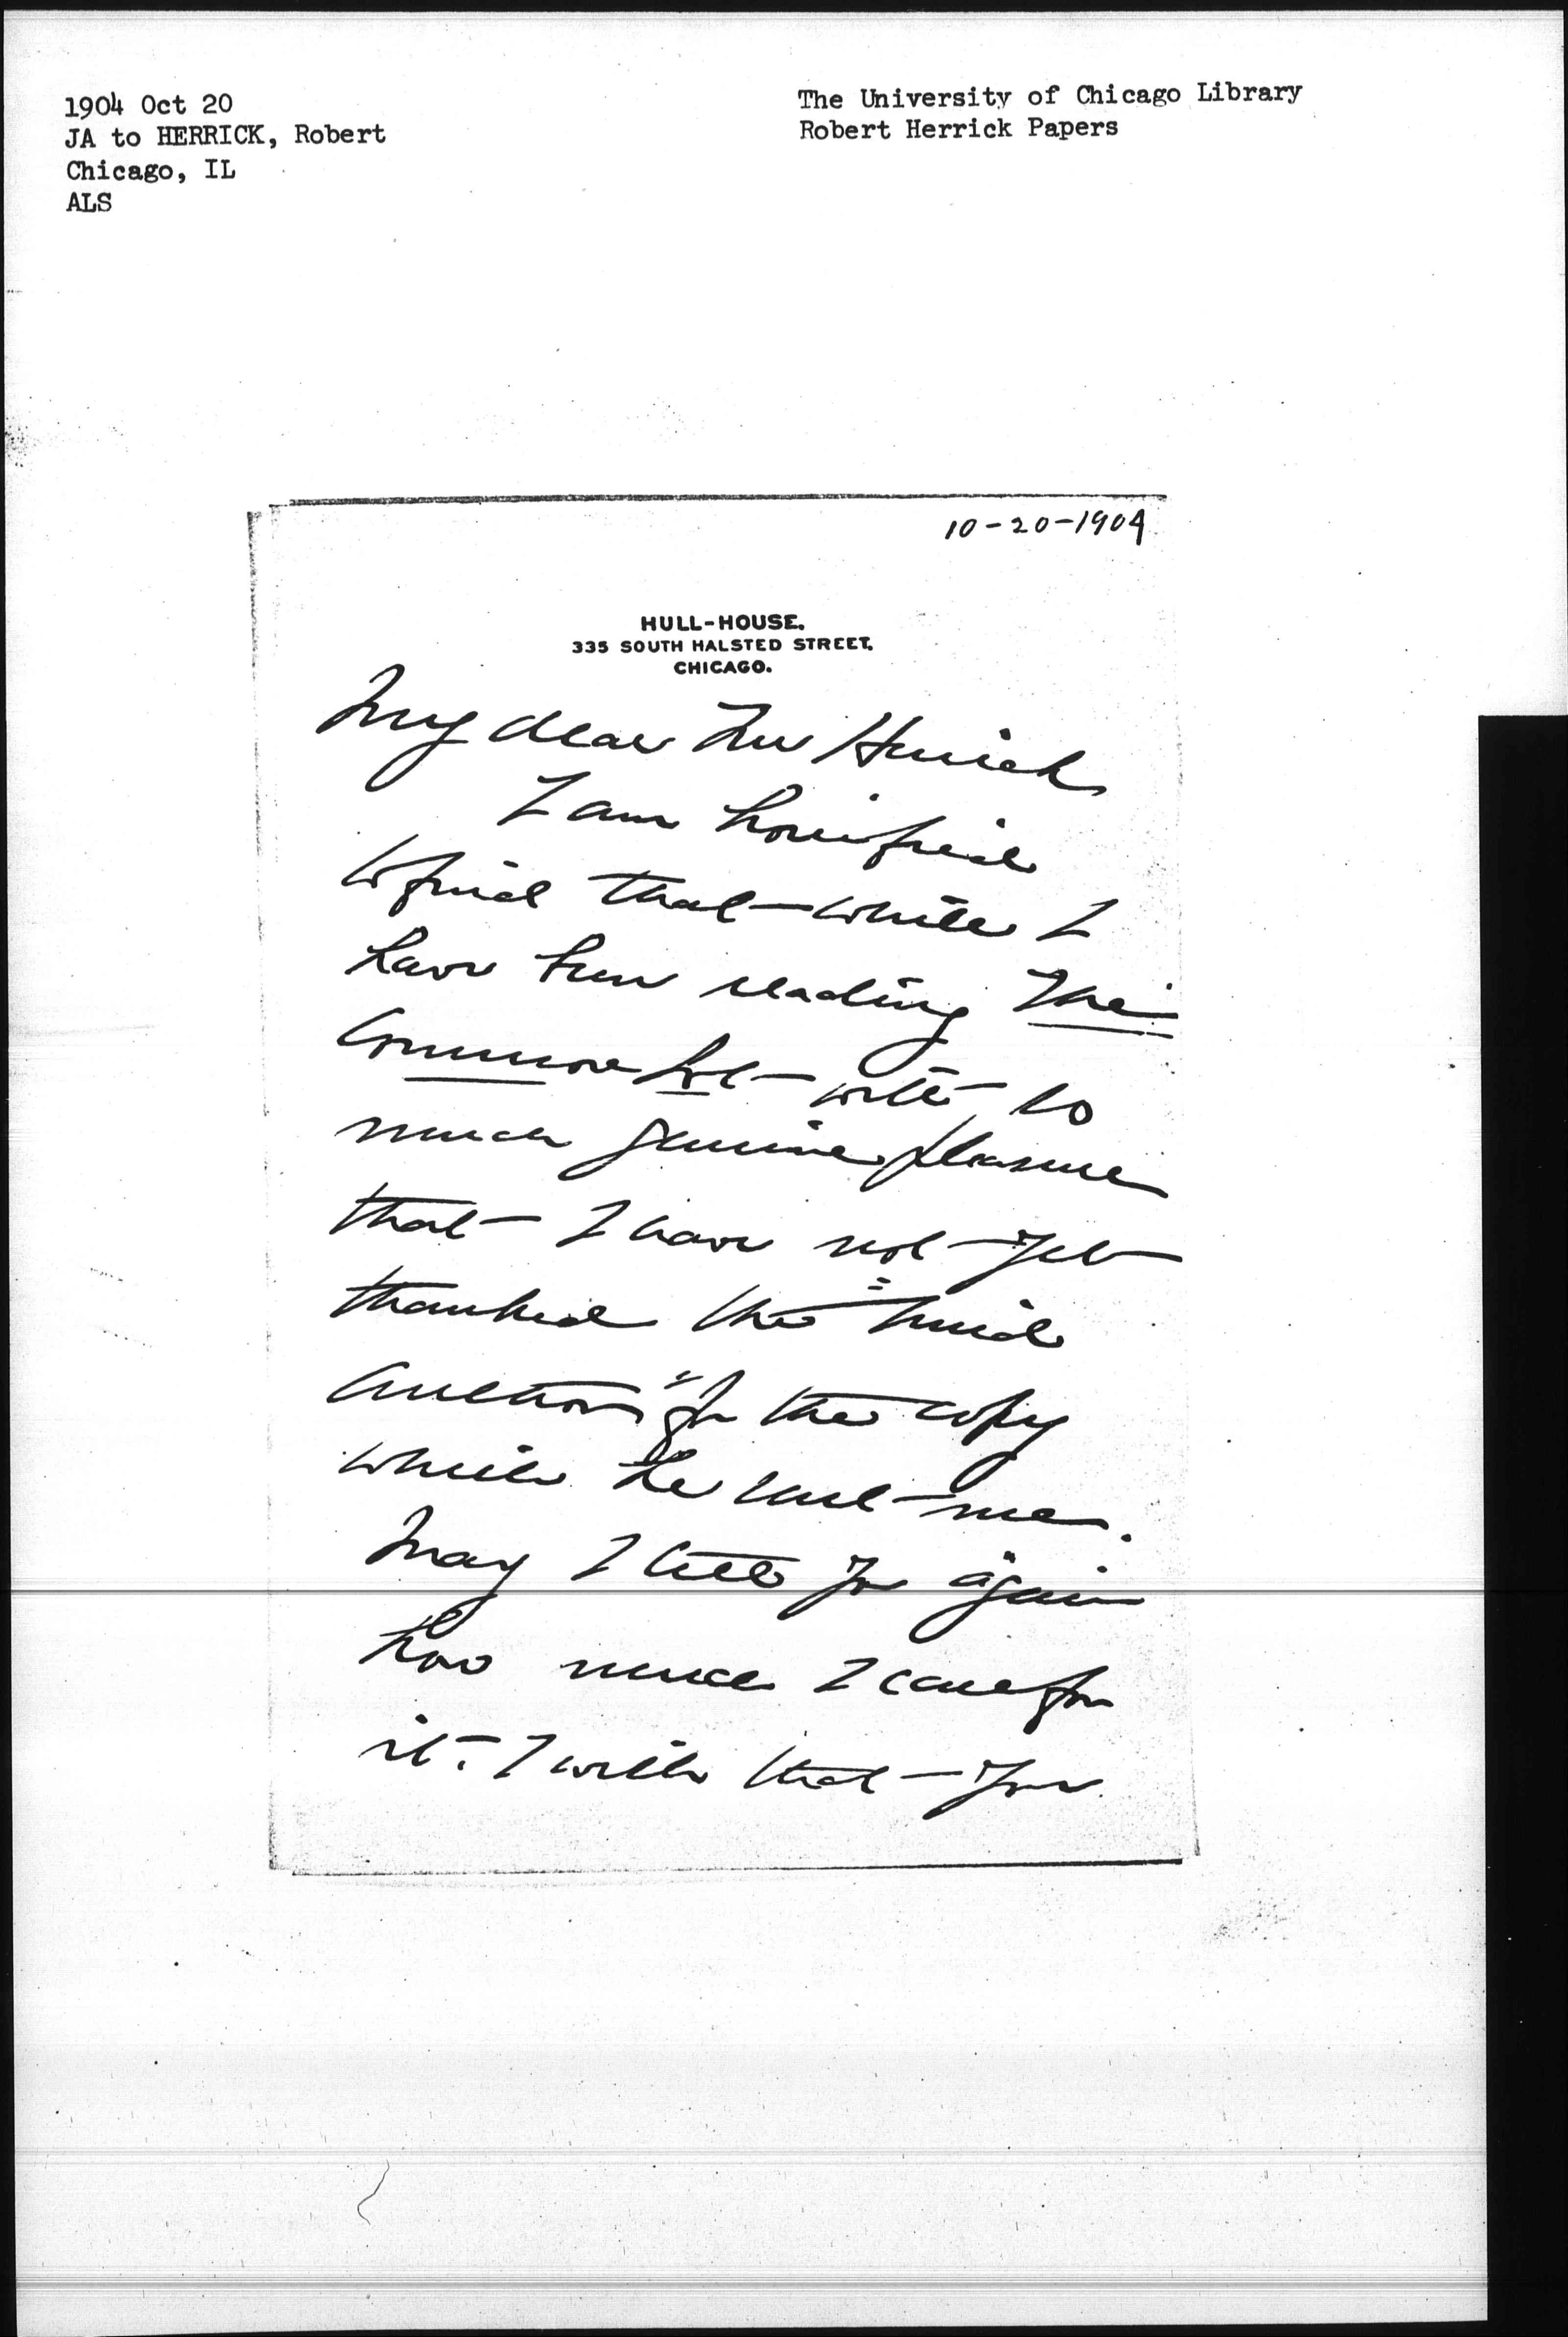 1904 Oct 20
JA to HERRICK, Robert
Chicago, IL
ALS
The University of Chicago Library
Robert Herrick Papers
10-20-1904
HULL-HOUSE.
335 SOUTH HALSTED STREET,
CHICAGO.
My dear Mr Herrick
I am horrified
to find that while I
have been reading The
Common Lot with so
much genuine pleasure
that I have not yet
thanked the "kind
author" for the copy
which he sent me.
May I tell you again
how much I care for
it. I wish that you